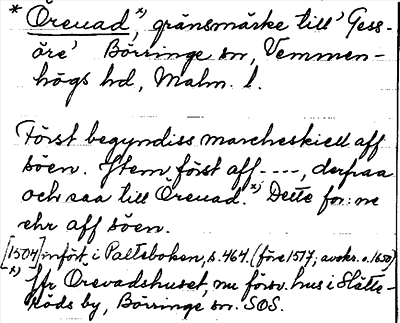 * Örevad x), gränsmärke till' Gess-
öre' Börringe sn, Vemmen-
högs hd, Malm. l.
Först begyndiss marcheskiell aff
söen. Jtem, först aff ----, derpaa
och saa till Örevad. x) Dette for: ne
ehr aff söen.
[1504] infört i Paltsboken, s. 464. (före 1517; avskr. o. 1650)
x) Jfr Örevadshuset, nu försv. hus i Slätte-
röds by, Börringe sn. SOS.